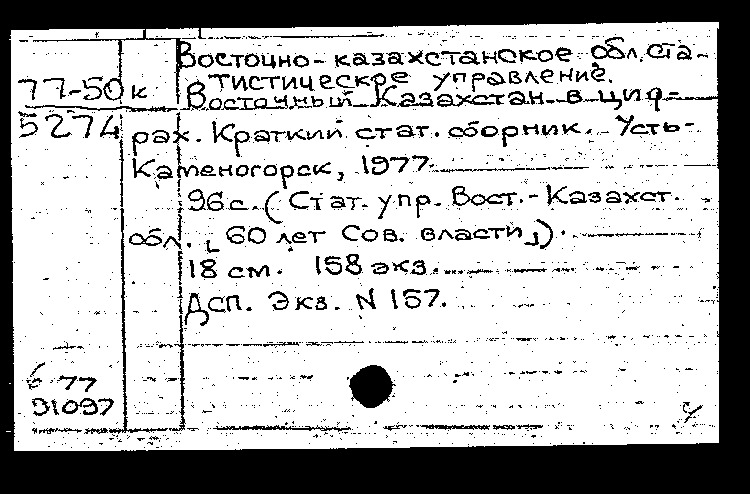 Восточно-казахстанское обл.ста-
77-50к тистическое управление.
Восточный Казахстан в циф-
5274 рах. Краткий стат. сборник. Усть-
Каменогорск, 1977
96 с. (Стат. упр. Вост.-Казахст.
обл. [60 лет Сов. власти]).
18 см. 158 экз.
Дсп. Экз. N 157.
6 77
91097